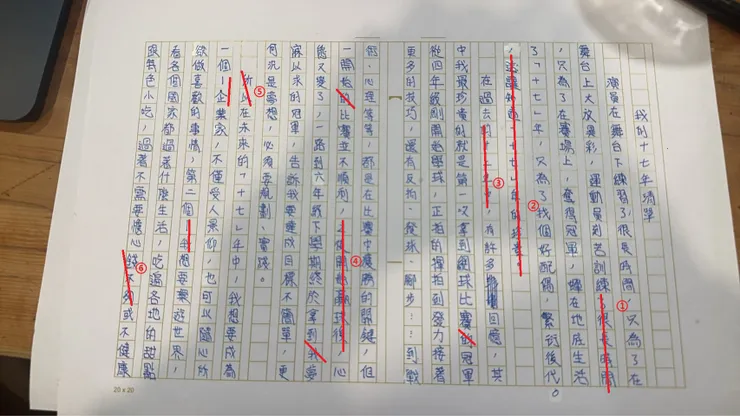 我的十七年清單
演員在舞台下練習了很長時間,只為了在
舞台上大放異彩,運動員刻苦訓練了很長時間
,只為了在賽場上,奪得冠軍,蟬在地底生活
了「十七」年,只為了找個好配偶,繁衍後代。
在過去的「十七」年,有許多回憶,其
中我最珍貴的就是第一次拿到網球比賽的冠軍
從四年級剛開始學球,正拍的揮拍到發力接著
更多的技巧,還有反拍、發球、腳步……到戰
術、心理等等,都是在比賽中應勝的關鍵,但
一開始的比賽並不順利,
六年級下學期終於拿到我夢
寐以求的冠軍,告訴我要達成目標不簡單,更
何況是夢想,必須要規劃、實踐。
所以在未來的「十七」年中,我想要成為
一個企業家,不僅受人景仰,也可以隨心所
欲做喜歡的事情,第二個,我想要環遊世界,
看各個國家都過著什麼生活,吃遍各地的甜點
跟特色小吃,過著不需要擔心錢不夠或不健康
①
②
③
④
⑤
⑥
20 x 20